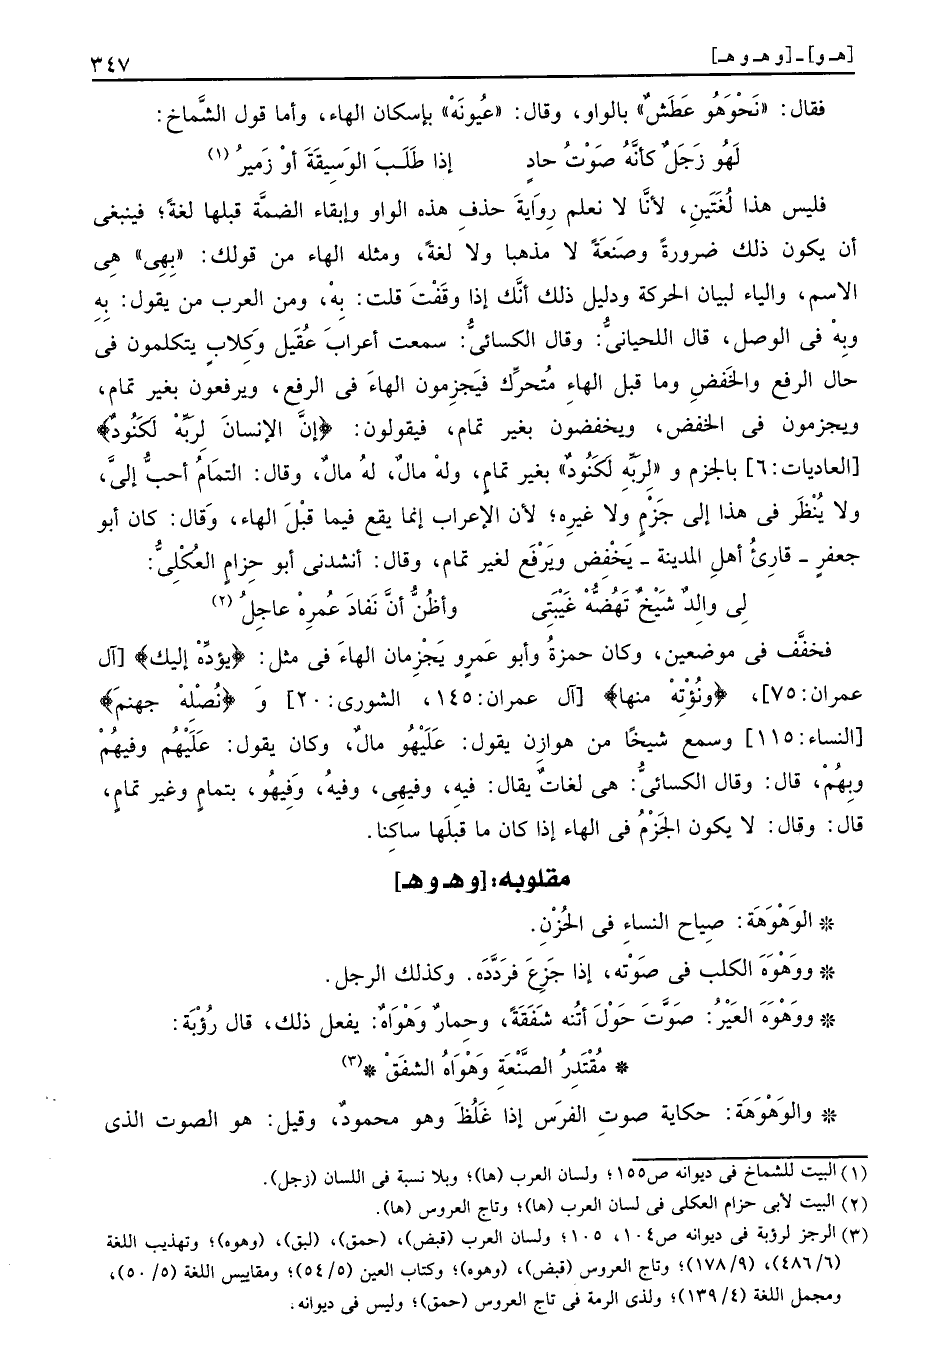 [هـ و] ـ [و هـ و هـ] ٣٤٧
فقال: «نَحْوَهُو عَطَشٌ» بالواو، وقال: «عُيونَهْ» بإسكان الهاء، وأما قول الشَّماخ:
لَهُو زَجَلٌ كأنَّهُ صَوْتُ حادٍ إذا طَلَبَ الوَسِيقَةَ أوْ زَميرُ (١)
فليس هذا لُغَتَينِ، لأنَّا لا نعلم رِوايةَ حذفِ هذه الواو وإبقاء الضمَّة قبلها لغةً؛ فينبغى
أن يكون ذلك ضرورةً وصَنعَةً لا مذهبا ولا لغةً، ومثله الهاء من قولك: «بِهِى» هى
الاسم، والياء لبيان الحركة ودليل ذلك أنَّك إذا وقَفْتَ قلت: بِهْ، ومن العرب من يقول: بِهِ
وبِهْ فى الوصل، قال اللحيانىُّ: وقال الكسائىُّ: سمعت أعرابَ عُقَيل وكَلِابٍ يتكلمون فى
حال الرفع والخَفضِ وما قبل الهاء مُتحرِّك فيَجزِمون الهاءَ فى الرفع، ويرفعون بغير تمام،
ويجزمون فى الخفض، ويخفضون بغير تمام، فيقولون: ﴿إنَّ الإنسانَ لِرَبِّهْ لَكَنُودٌ﴾
[العاديات: ٦] بالجزم و «لِرَبِّهِ لَكَنُودٌ» بغير تمامٍ، ولهْ مالٌ، لهُ مالٌ، وقال: التمَامُ أحبُّ إلىَّ،
ولا يُنْظَر فى هذا إلى جَزْمٍ ولا غيرِه؛ لأن الإعراب إنما يقع فيما قبْلَ الهاء، وقَال: كان أبو
جعفرٍ ـ قارئُ أهلِ المدينة ـ يَخْفِض ويَرْفَع لغير تمام، وقال: أنشدنى أبو حِزامٍ العُكْلِىُّ:
لِى والِدٌ شَيْخٌ تَهُضُّهْ غَيْبَتِى وأظُنُّ أنَّ نَفادَ عُمرِهْ عاجلُ (٢)
فخفَّف فى موضعين، وكان حمزةُ وأبو عَمرٍو يَجْزِمان الهاءَ فى مثل: ﴿يؤدِّهْ إليك﴾ [آل
عمران: ٧٥]، ﴿ونُؤْتِهْ منها﴾ [آل عمران: ١٤٥، الشورى: ٢٠] وَ ﴿نُصْلِهْ جهنمَ﴾
[النساء: ١١٥] وسمع شيخًا من هوازِن يقول: عَلَيْهُو مالٌ، وكان يقول: عَلَيْهُم وفيهُمْ
وبِهُمْ، قال: وقال الكسائىُّ: هى لغاتٌ يقال: فيهِ، وفيهِى، وفيهُ، وَفِيهُو، بتمامٍ وغير تمامٍ،
قال: وقال: لا يكون الجَزْمُ فى الهاء إذا كان ما قبلَها ساكنا.
مقلوبه: [و هـ و هـ]
* الوَهْوَهَة: صِياح النساءِ فى الحُزْنِ.
* ووَهْوَهَ الكلب فى صَوْته، إذا جَزِعَ فَردَّدَه. وكذلك الرجل.
* ووَهْوَهَ العَيْرُ: صوَّتَ حَوْلَ أتُنِه شفَقَةً، وحمارٌ وَهْوَاهٌ: يفعل ذلك، قال رُؤبَة:
* مُقْتَدِرُ الصَّنْعَةِ وَهْوَاهُ الشفَقْ *(٣)
* والوَهْوَهَة: حكاية صوتِ الفرَس إذا غَلُظَ وهو محمودٌ، وقيل: هو الصوت الذى
(١) البيت للشماخ فى ديوانه ص١٥٥؛ ولسان العرب (ها)؛ وبلا نسبة فى اللسان (زجل).
(٢) البيت لأبى حزام العكلى فى لسان العرب (ها)؛ وتاج العروس (ها).
(٣) الرجز لرؤبة فى ديوانه ص١٠٤، ١٠٥؛ ولسان العرب (قبض)، (حمق)، (لبق)، (وهوه)؛ وتهذيب اللغة
(٤٨٦/٦)، (١٧٨/٩)؛ وتاج العروس (قبض)، (وهوه)؛ وكتاب العين (٥٤/٥)؛ ومقاييس اللغة (٥٠/٥)،
ومجمل اللغة (١٣٩/٤)؛ ولذى الرمة فى تاج العروس (حمق)؛ وليس فى ديوانه.